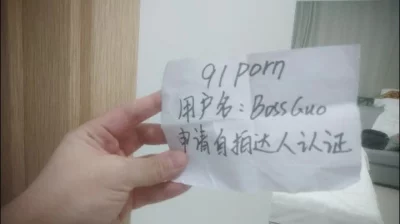 91 porn
用户名：BossGuo
申请自拍达人认证